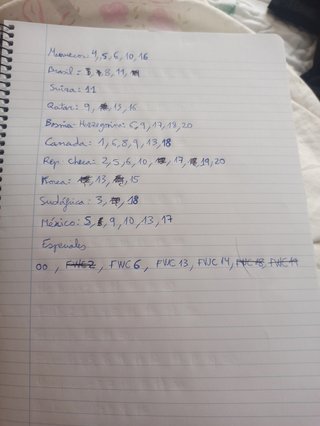 Marruecos: 4, 5, 6, 10, 16
Brasil: 8, 11,
Suiza: 11
Qatar: 9, 13, 16
Bosnia Herzegovina: 6, 9, 17, 18, 20
Canada: 1, 6, 8, 9, 13, 18
Rep. Checa: 2, 5, 6, 10, 17, 19, 20
Korea: 13, 15
Sudáfrica: 3, 18
México: 5, 9, 10, 13, 17
Especiales
00, FWC2, FWC 6, FWC 13, FWC 14, FWC 18, FWC 19